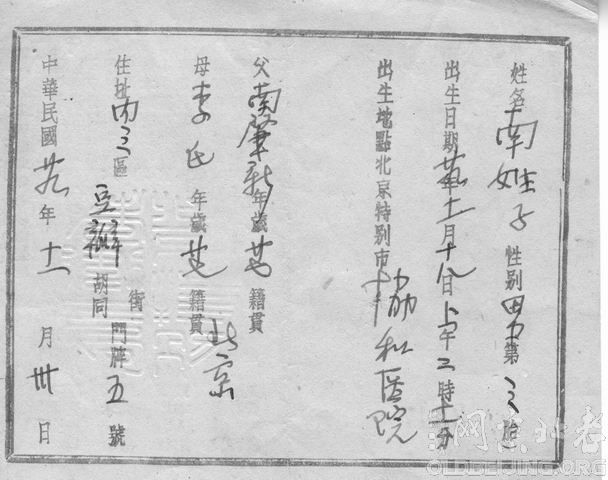 姓名南姓子性别男第三胎
出生日期 年十一月十八日上午二時十一分
出生地點北京特别市協和医院
父南肇 年歲 籍貫
母李氏年歲 籍貫北京
住址内三區豆瓣街胡同門牌五號
中華民國 年十一月卅日
老北京网
OLDBEIJING.ORG